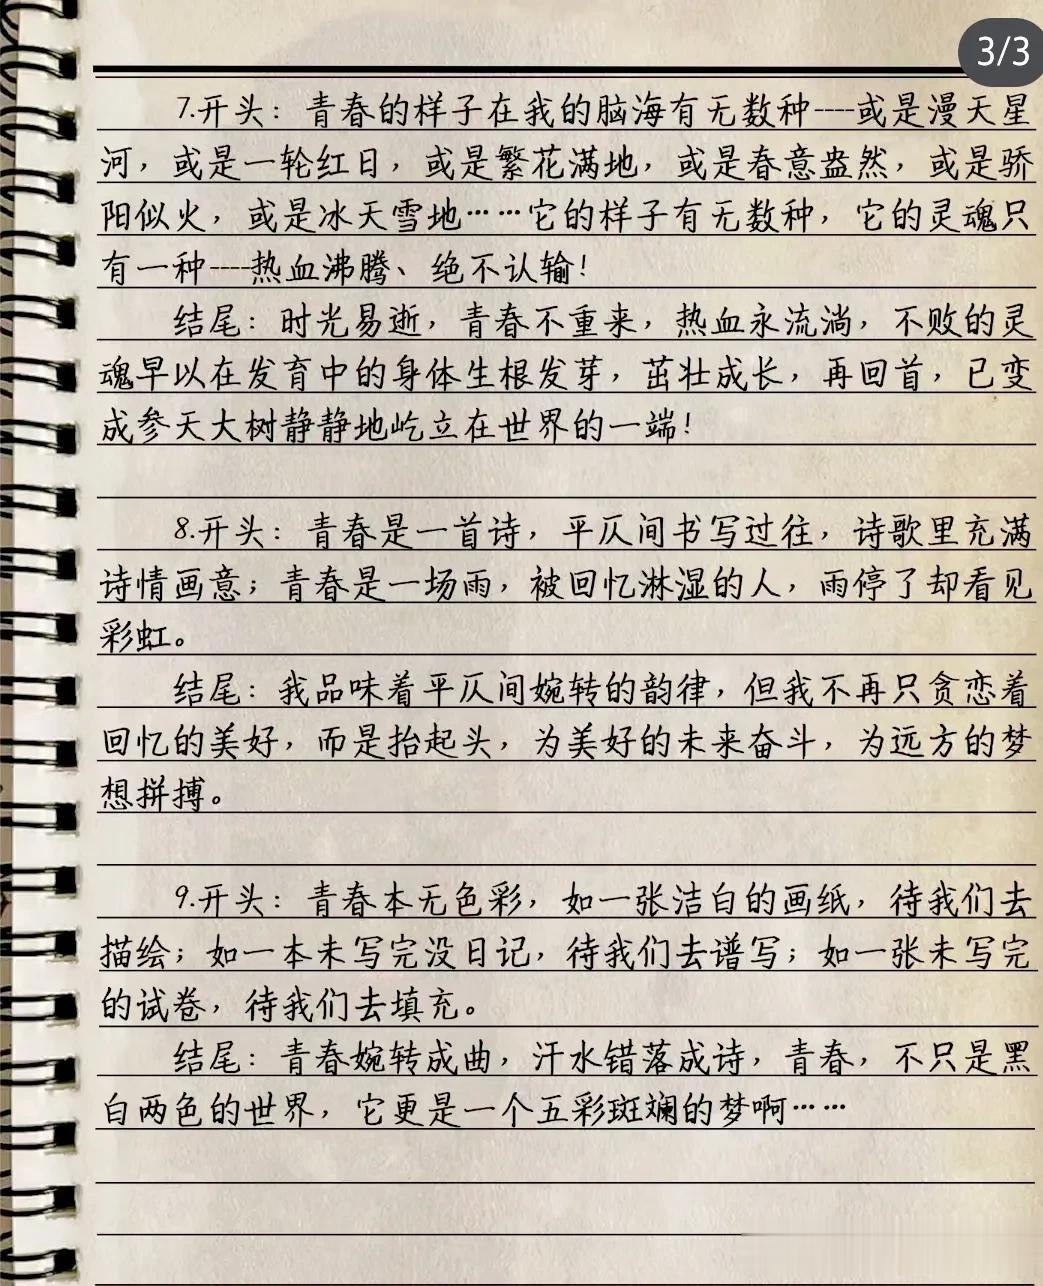 3/3
7.开头：青春的样子在我的脑海有无数种----或是漫天星
河，或是一轮红日，或是繁花满地，或是春意盎然，或是骄
阳似火，或是冰天雪地……它的样子有无数种，它的灵魂只
有一种----热血沸腾、绝不认输！
结尾：时光易逝，青春不重来，热血永流淌，不败的灵
魂早以在发育中的身体生根发芽，茁壮成长，再回首，已变
成参天大树静静地屹立在世界的一端！
8.开头：青春是一首诗，平仄间书写过往，诗歌里充满
诗情画意；青春是一场雨，被回忆淋湿的人，雨停了却看见
彩虹。
结尾：我品味着平仄间婉转的韵律，但我不再只贪恋着
回忆的美好，而是抬起头，为美好的未来奋斗，为远方的梦
想拼搏。
9.开头：青春本无色彩，如一张洁白的画纸，待我们去
描绘；如一本未写完没日记，待我们去谱写；如一张未写完
的试卷，待我们去填充。
结尾：青春婉转成曲，汗水错落成诗，青春，不只是黑
白两色的世界，它更是一个五彩斑斓的梦啊……